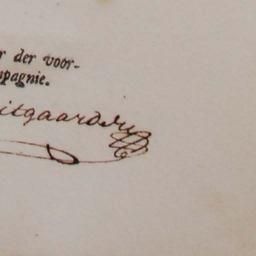 r der voor-
mpagnie.
itgaarden